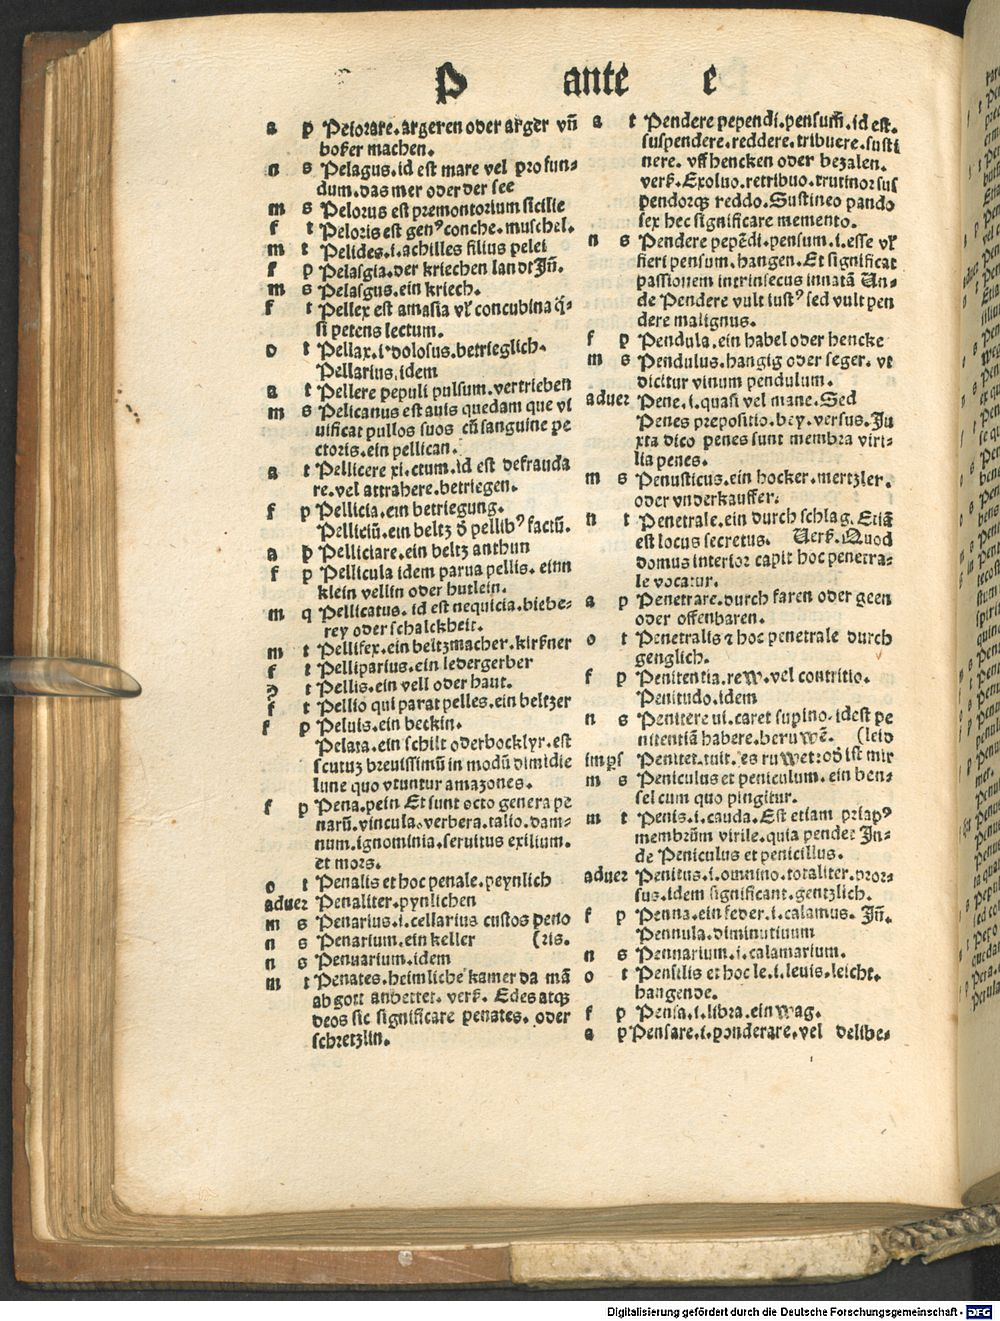 P ante e
a p Peiorare. argeren oder arger vñ
boßer machen.
n s Pelagus. id est mare vel profun-
dum. das mer oder der see
m s Pelorus est premontorium sicilie
f t Peloris est gen⁹ conche. muschel.
m t Pelides. i. achilles filius pelei
f p Pelasgia. der kriechen landt Jñ.
m s Pelasgus. ein kriech.
f t Pellex est amasia vl' concubina q̄-
si petens lectum.
o t Pellax. i. dolosus. betrieglich.
Pellarius. idem
a t Pellere pepuli pulsum. vertrieben
m s Pelicanus est auis quedam que vi
uificat pullos suos cū sanguine pe
ctoris. ein pellican.
a t Pellicere xi. ctum. id est defrauda
re. vel attrahere. betriegen.
f p Pellicia. ein betriegung.
Pelliciū. ein beltz ð pellib⁹ factū.
a p Pelliciare. ein beltz anthun
f p Pellicula idem parua pellis. einn
klein vellin oder hutlein.
m q Pellicatus. id est nequicia. biebe-
rey oder schalckheit.
m t Pellifex. ein beltzmacher. kirßner
f t Pelliparius. ein ledergerber
t Pellis. ein vell oder haut.
f t Pellio qui parat pelles. ein beltzer
f p Peluis. ein beckin.
Pelata. ein schilt oder bocklyr. est
scutuʒ breuissimū in modū dimidie
lune quo vtuntur amazones.
f p Pena. pein Et sunt octo genera pe
narū. vincula. verbera. talio. dam-
num. ignominia. seruitus exilium.
et mors.
o t Penalis et hoc penale. peynlich
aduer Penaliter. pynlichen
m s Penarius. i. cellarius custos peno
n s Penarium. ein keller (ris.
n s Penuarium. idem
m t Penates. heimliche kamer da mā
abgott anbettet. verß. Edes atqʒ
deos sic significare penates. oder
schretzlin.
a t Pendere pependi. pensum. id est.
suspendere. reddere. tribuere. susti
nere. vff hencken oder bezalen.
verß. Exoluo. retribuo. trutinor sus
pendorqʒ reddo. Sustineo pando
sex hec significare memento.
n s Pendere pepēdi. pensum. i. esse vl'
fieri pensum. hangen. Et significat
passionem intrinsecus innatā Un-
de Pendere vult iust⁹ sed vult pen
dere malignus.
f p Pendula. ein habel oder hencke
m s Pendulus. hangig oder seger. vt
dicitur vinum pendulum.
aduer Pene. i. quasi vel mane. Sed
Penes prepositio. bey. versus. Ju
xta dico penes sunt membra viri-
lia penes.
m s Penusticus. ein hocker. mertzler.
oder vnderkauffer.
n t Penetrale. ein durch schlag. Etiā
est locus secretus. Verß. Quod
domus interior capit hoc penetra-
le vocatur.
a p Penetrare. durch faren oder geen
oder offenbaren.
o t Penetralis ⁊ hoc penetrale durch
genglich.
f p Penitentia. rew. vel contritio.
Penitudo. idem
n s Penitere ui. caret supino. idest pe
nitentiā habere. beruwē. (leid
impers Penitet. tuit. es ruwet: oð ist mir
m s Peniculus et peniculum. ein ben-
sel cum quo pingitur.
m t Penis. i. cauda. Est etiam priap⁹
membrūm virile. quia pendet Jn-
de Peniculus et penicillus.
aduer Penitus. i. omnino. totaliter. pror-
sus. idem significant. gentzlich.
f p Penna. ein feder. i. calamus. Jñ.
Pennula. diminutiuum
n s Pennarium. i. calamarium.
o t Pensilis et hoc le. i. leuis. leicht.
hangende.
f p Pensa. i. libra. ein wag.
a p Pensare. i. ponderare. vel delibe-
Digitalisierung gefördert durch die Deutsche Forschungsgemeinschaft - DFG